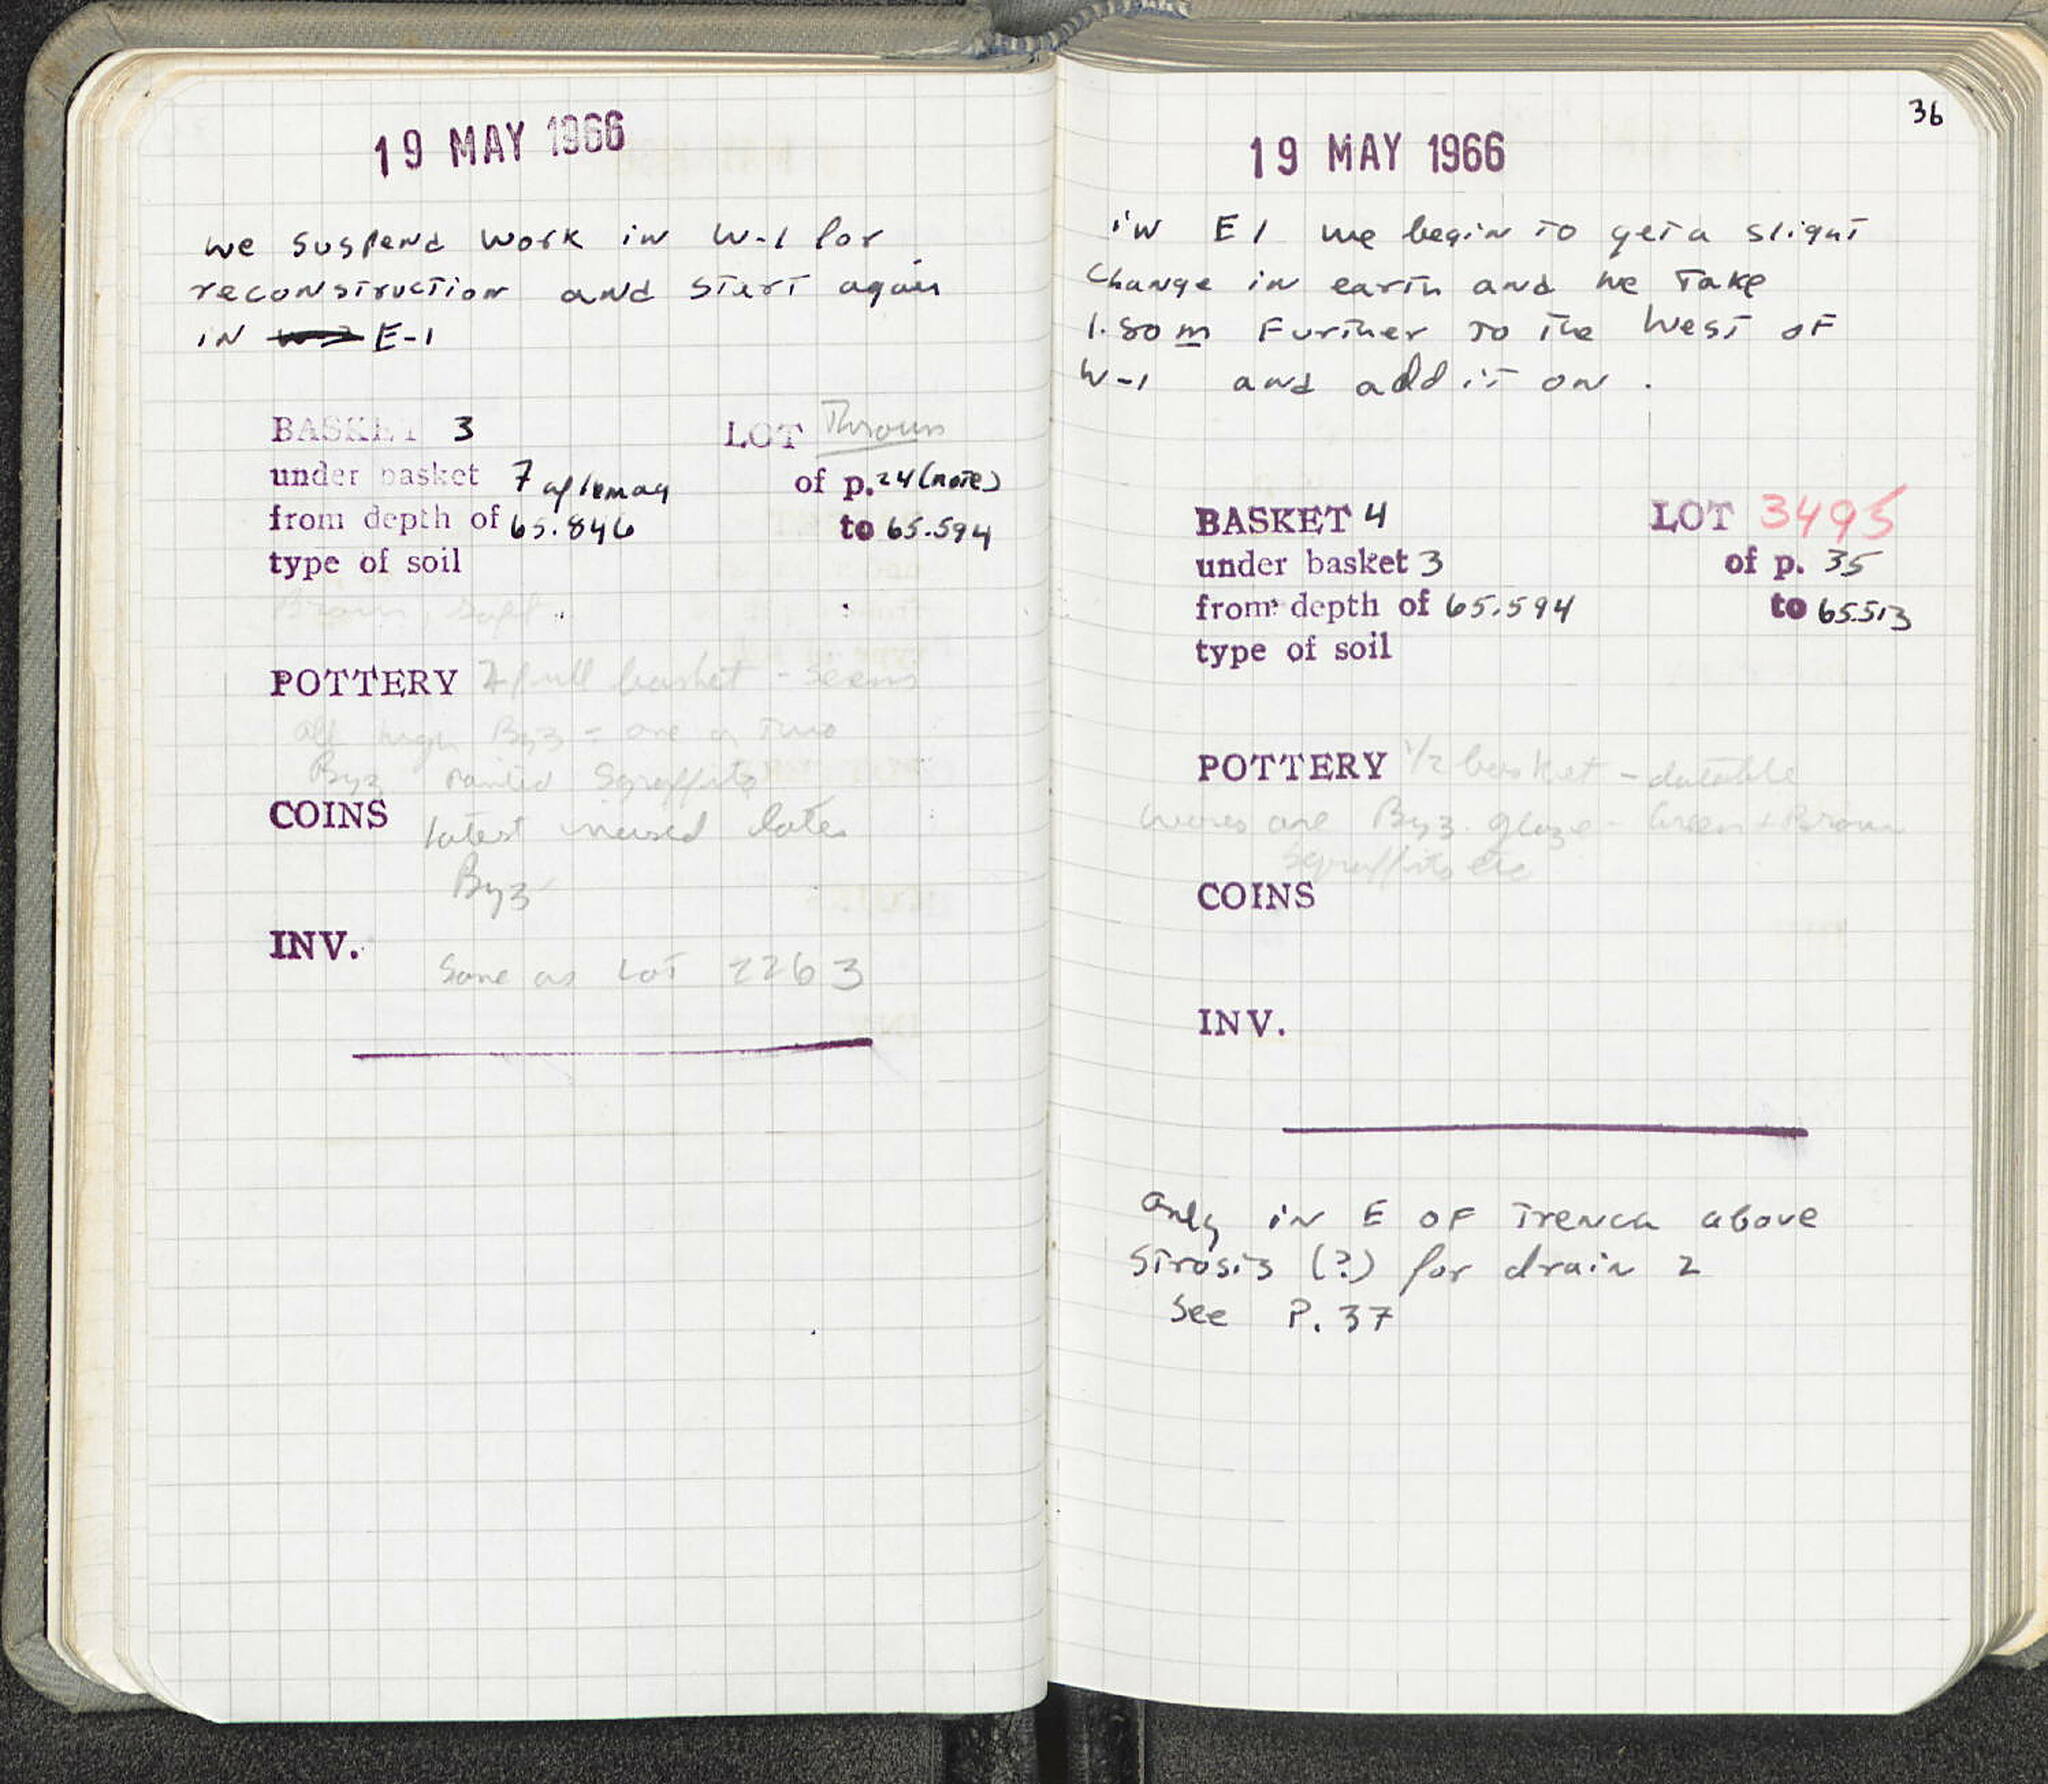 19 MAY 1966
we suspend work in W-1 for
reconstruction and start again
IN E-1
BASKET 3 LOT Thrown
under basket 7 of 16 may of p. 24 (note)
from depth of 65.846 to 65.594
type of soil
Brown soft
POTTERY full basket - seems
all high Byz - one or two
Byz painted Sgraffito
COINS latest incised lates
Byz
INV.
Same as LOT 2263
36
19 MAY 1966
in E1 we begin to get a slight
change in earth and we take
1.80 m Further to the West of
W-1 and add it on.
BASKET 4 LOT 3495
under basket 3 of p. 35
from depth of 65.594 to 65.513
type of soil
POTTERY 1/2 basket - datable
wares are Byz. glaze - Green + Brown
Sgraffito etc
COINS
INV.
only in E of Trench above
Strosis (?) for drain 2
See P. 37